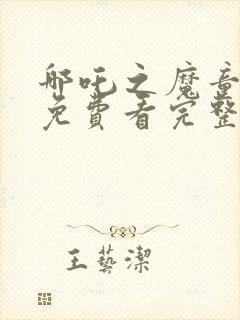 哪吒之魔童
免費看完整
王藝潔